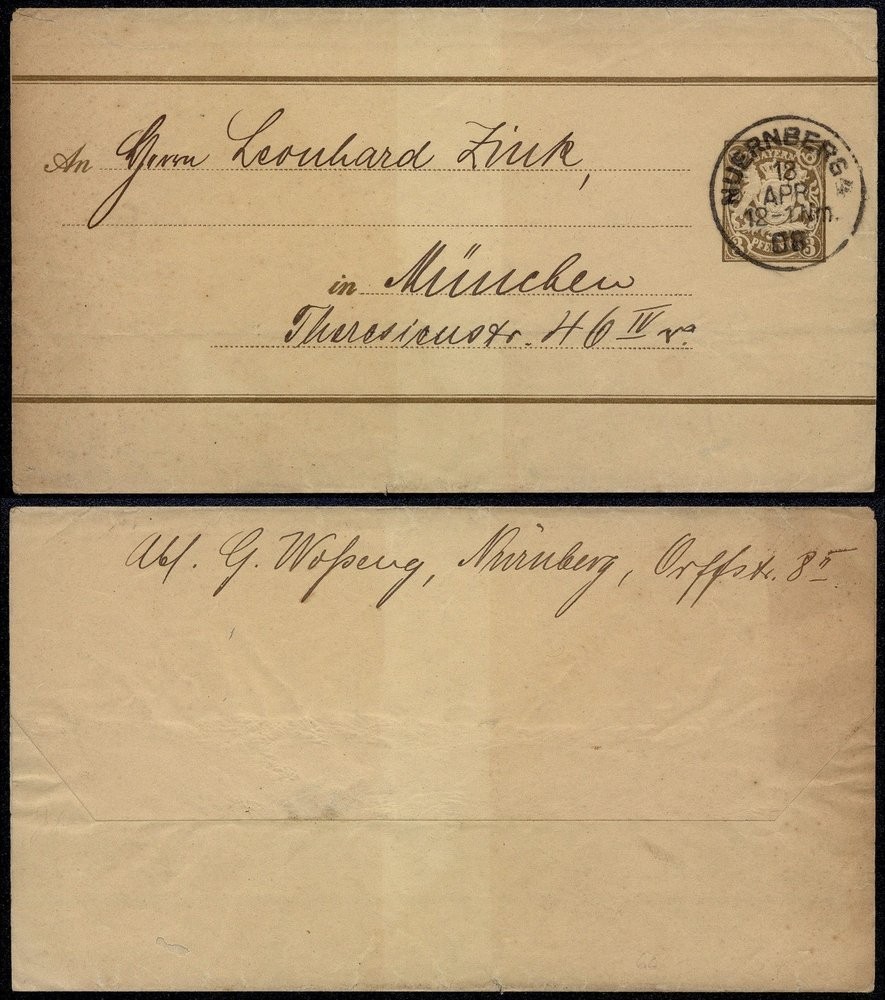 An Herrn Leonhard Zink,
in München
Theresienstr. 46 IV r.
NUERNBERG
BAYERN
18
APR
12-1 Nm.
08
3 PFENNIG 3
Abs. G. Woßeng, Nürnberg, Orffstr. 8 II